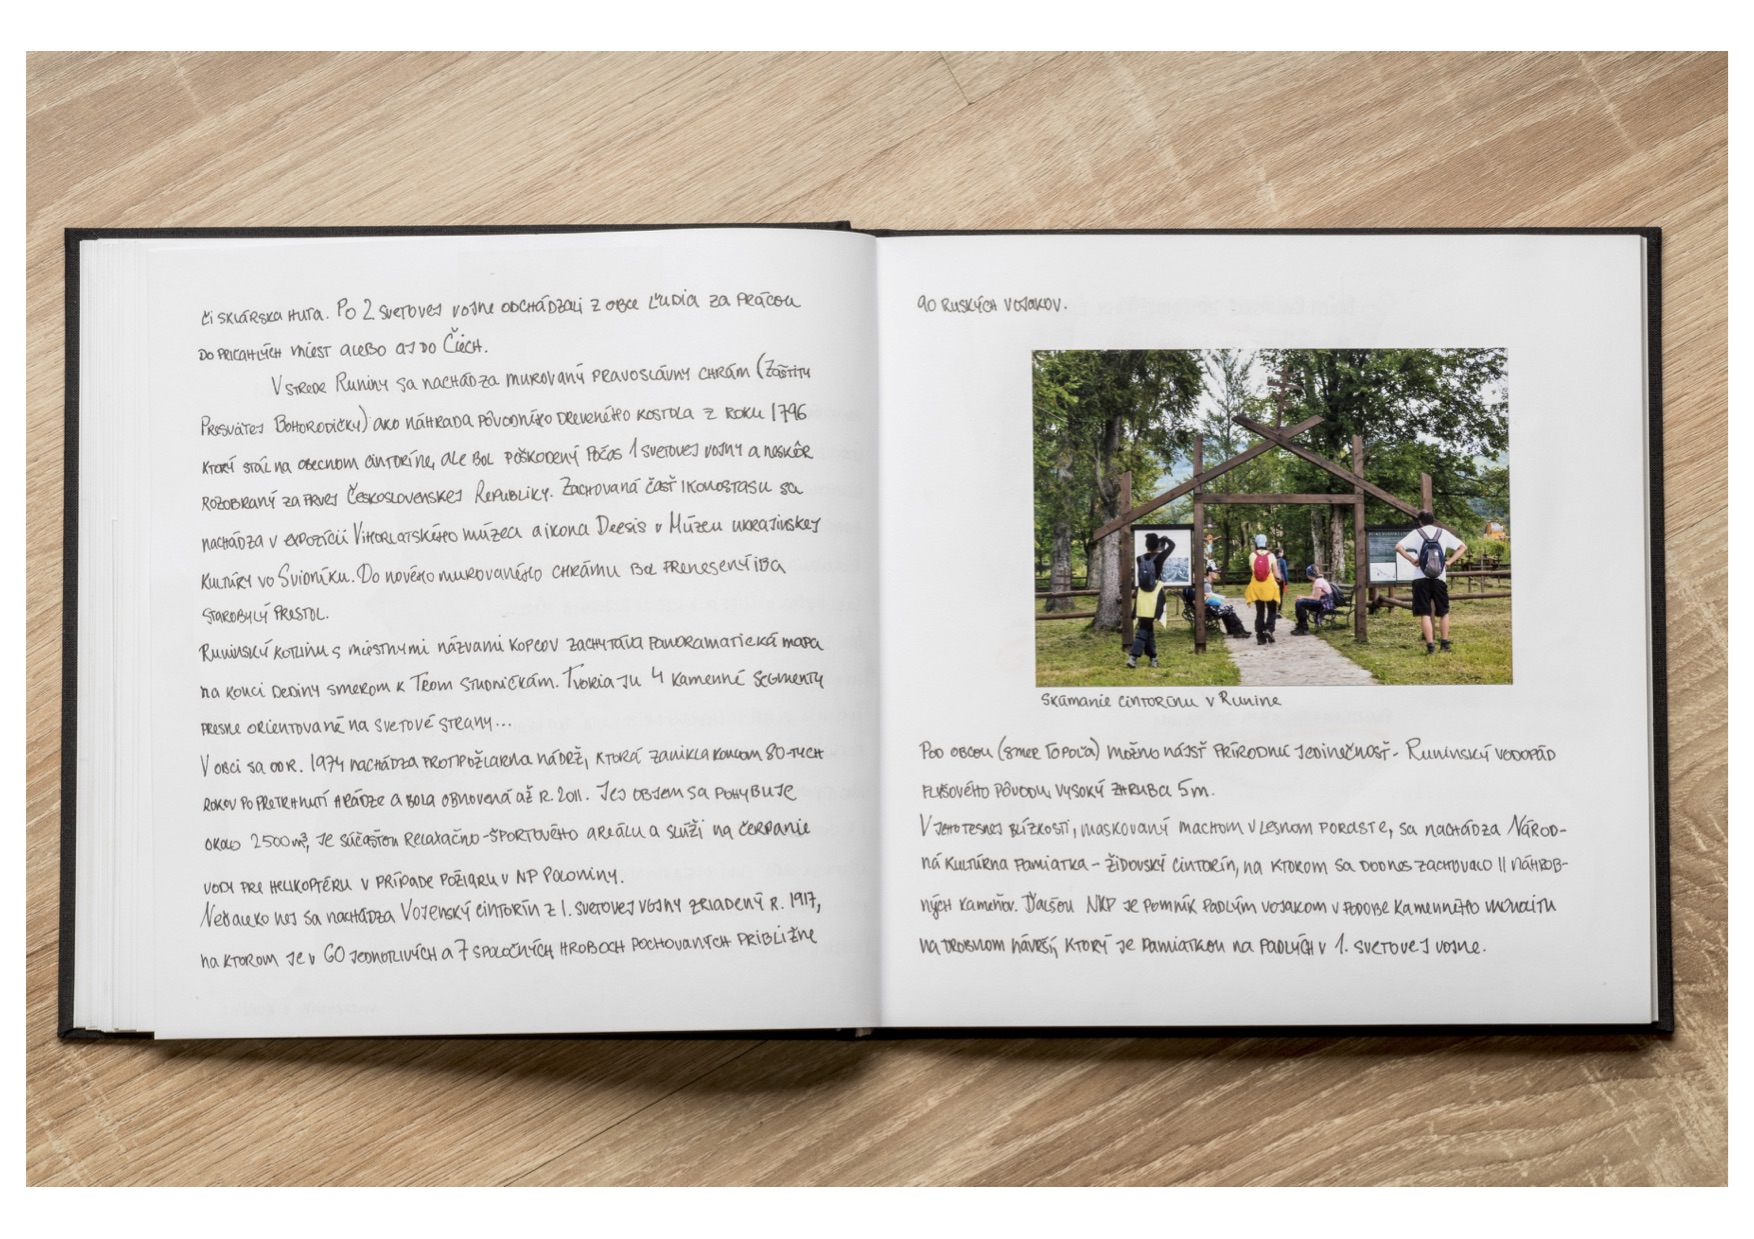 či sklárska huta. Po 2 svetovej vojne odchádzali z obce ľudia za prácou
do priľahlých miest alebo aj do Čiech.
V strede Runiny sa nachádza murovaný pravoslávny chrám (Zaštity
Presvätej Bohorodičky) ako náhrada pôvodného dreveného kostola z roku 1796
ktorý stál na obecnom cintoríne, ale bol poškodený počas 1 svetovej vojny a neskôr
rozobraný za prvej Československej Republiky. Zachovaná časť ikonostasu sa
nachádza v expozícii Vihorlatského múzea a ikona Deesis v Múzeu ukrajinskej
kultúry vo Svidníku. Do nového murovaného chrámu bol prenesený iba
starobylý prestol.
Runinskú kotlinu s miestnymi názvami kopcov zachytáva panoramatická mapa
na konci dediny smerom k Trom studničkám. Tvoria ju 4 kamenné segmenty
presne orientované na svetové strany...
V obci sa od r. 1974 nachádza protipožiarna nádrž, ktorá zanikla koncom 80-tych
rokov po pretrhnutí hrádze a bola obnovená až r. 2011. Jej objem sa pohybuje
okolo 2500m³, je súčasťou relaxačno-športového areálu a slúži na čerpanie
vody pre helikoptéru v prípade požiaru v NP Poloniny.
Neďaleko nej sa nachádza Vojenský cintorín z 1. svetovej vojny zriadený r. 1917,
na ktorom je v 60 jednotlivých a 7 spoločných hroboch pochovaných približne
90 ruských vojakov.
Skúmanie cintorínu v Runine
Pod obcou (smer Topoľa) možno nájsť prírodnú jedinečnosť - Runinský vodopád
flyšového pôvodu, vysoký zhruba 5m.
V jeho tesnej blízkosti, maskovaný machom v lesnom poraste, sa nachádza Národ-
ná kultúrna pamiatka - židovský cintorín, na ktorom sa dodnes zachovalo 11 náhrob-
ných kameňov. Ďalšou NKP je pomník padlým vojakom v podobe kamenného monolitu
na drobnom návrší, ktorý je pamiatkou na padlých v 1. svetovej vojne.